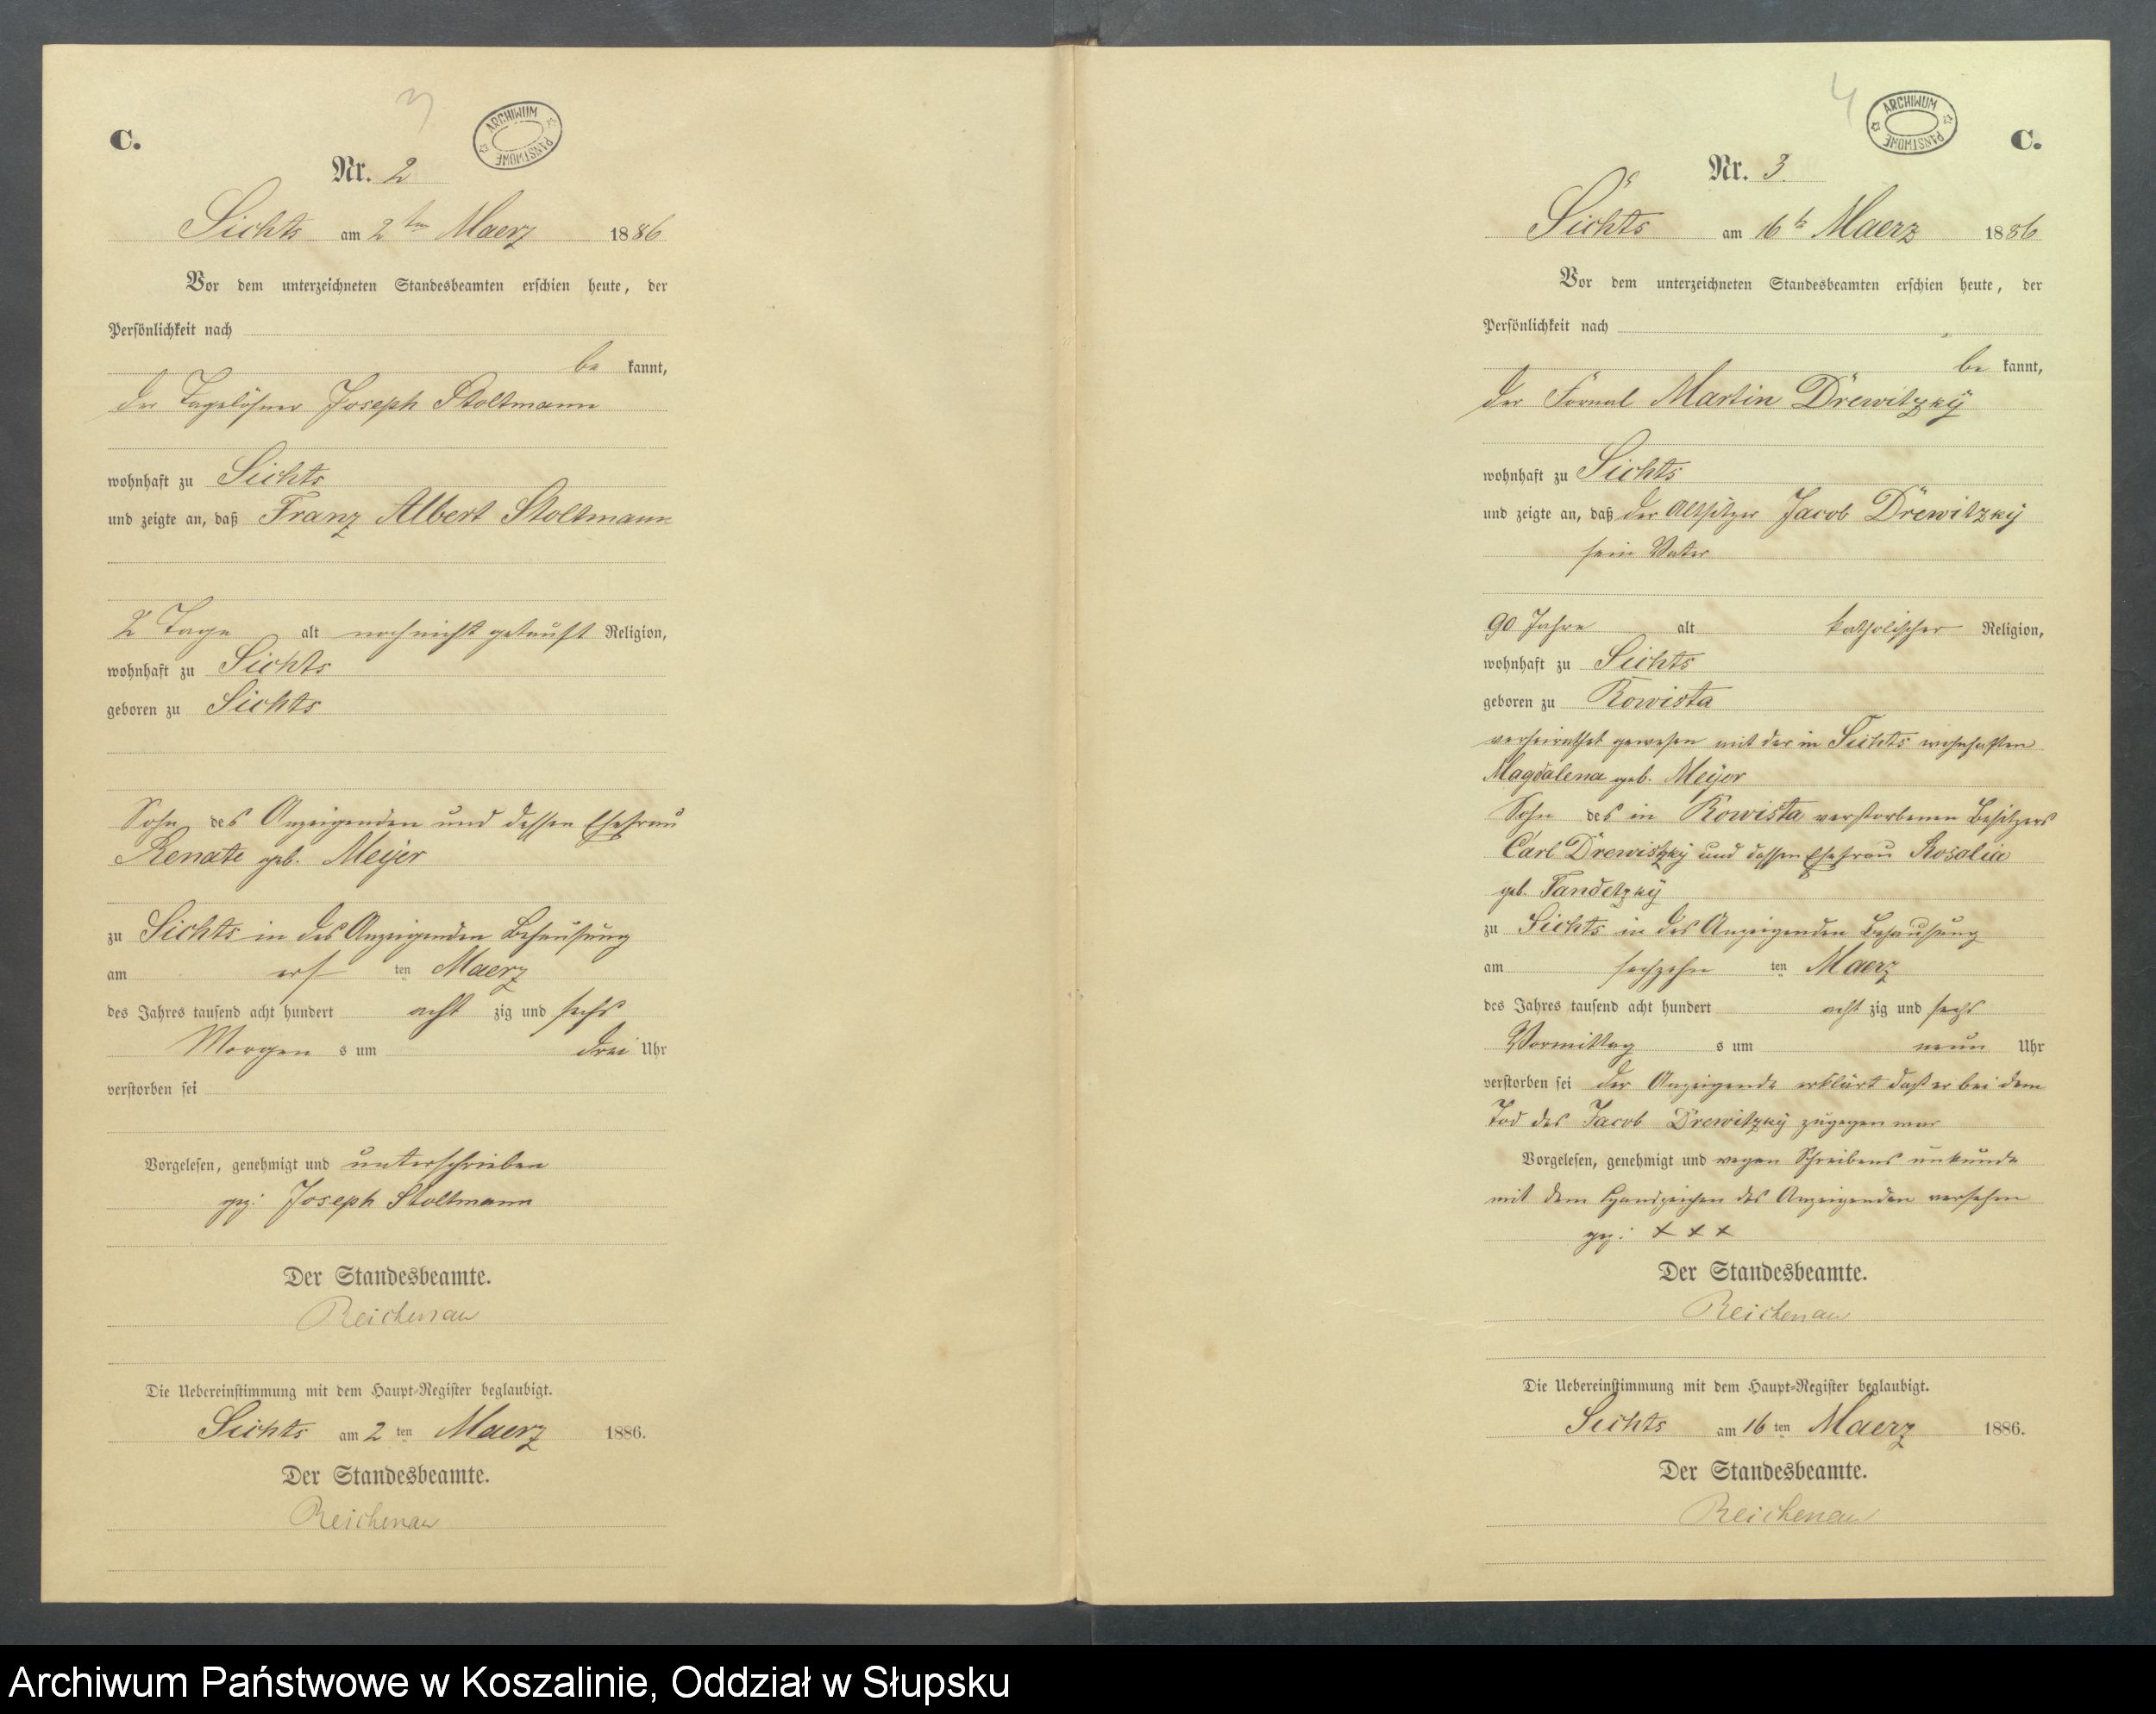 3
ARCHIWUM PAŃSTWOWE
C.
Nr. 2
Sichts am 2ten Maerz 1886
Vor dem unterzeichneten Standesbeamten erschien heute, der
Persönlichkeit nach
be kannt,
der Tagelöhner Joseph Stoltmann
wohnhaft zu Sichts
und zeigte an, daß Franz Albert Stoltmann
2 Tage alt noch nicht getauft Religion,
wohnhaft zu Sichts
geboren zu Sichts
Sohn des Anzeigenden und dessen Ehefrau
Renate geb. Meyer
zu Sichts in des Anzeigenden Behausung
am ers ten Maerz
des Jahres tausend acht hundert acht zig und sechs
Morgen s um drei Uhr
verstorben sei
Vorgelesen, genehmigt und unterschrieben
gez: Joseph Stoltmann
Der Standesbeamte.
Reichenau
Die Uebereinstimmung mit dem Haupt-Register beglaubigt.
Sichts am 2 ten Maerz 1886.
Der Standesbeamte.
Reichenau
4
ARCHIWUM PAŃSTWOWE
C.
Nr. 3.
Sichts am 16t Maerz 1886
Vor dem unterzeichneten Standesbeamten erschien heute, der
Persönlichkeit nach
be kannt,
der Fornal Martin Drewitzky
wohnhaft zu Sichts
und zeigte an, daß der Altsitzer Jacob Drewitzky
sein Vater
90 Jahre alt katholischer Religion,
wohnhaft zu Sichts
geboren zu Kowista
verheirathet gewesen mit der in Sichts wohnhaften
Magdalena geb. Meyer
Sohn des in Kowista verstorbenen Besitzers
Carl Drewitzky und dessen Ehefrau Rosalia
geb. Tandetzky
zu Sichts in des Anzeigenden Behausung
am sechzehn ten Maerz
des Jahres tausend acht hundert acht zig und sechs
Vormittag s um neun Uhr
verstorben sei der Anzeigende erklärt daß er bei dem
Tod des Jacob Drewitzky zugegen war
Vorgelesen, genehmigt und wegen Schreibens unkunde
mit dem Handzeichen des Anzeigenden versehen
gez: + + +
Der Standesbeamte.
Reichenau
Die Uebereinstimmung mit dem Haupt-Register beglaubigt.
Sichts am 16 ten Maerz 1886.
Der Standesbeamte.
Reichenau
Archiwum Państwowe w Koszalinie, Oddział w Słupsku